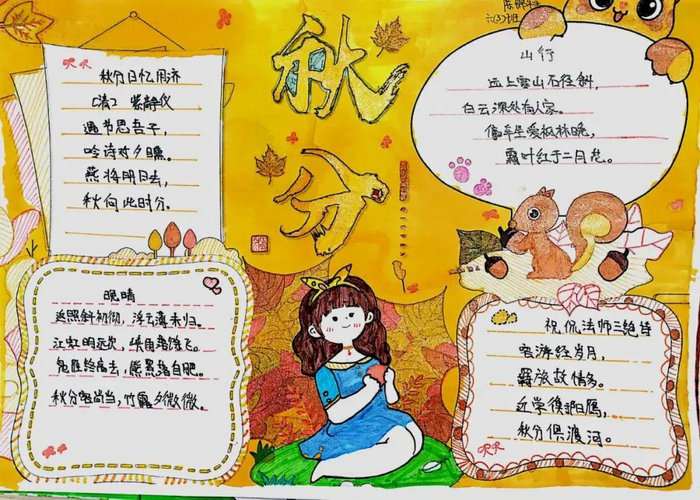 六(3)班
秋分
秋分日忆用济
(清) 紫静仪
遇节思吾子,
吟诗对夕曛。
燕将明日去,
秋向此时分。
山行
远上寒山石径斜,
白云深处有人家。
停车坐爱枫林晚,
霜叶红于二月花。
晚晴
返照斜初彻,浮云薄未归。
江虹明远饮,峡雨落馀飞。
凫雁终高去,熊罴觉自肥。
秋分客尚当,竹露夕微微。
祝侃法师三绝诗
客游经岁月,
羁旅故情多。
近学衡阳雁,
秋分俱渡河。